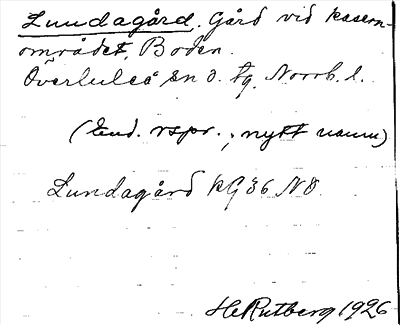 Lundagård. Gård vid kasern-
området, Boden.
Överluleå sn o. tg. Norrb. l.
(End. rspr.; nytt namn)
Lundagård kG36 NÖ
H Rutberg 1926